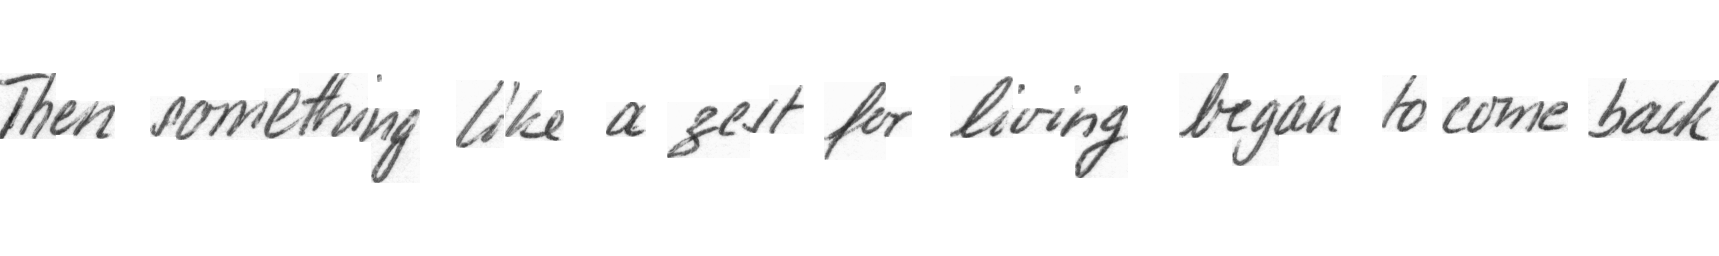 Then something like a zest for living began to come back